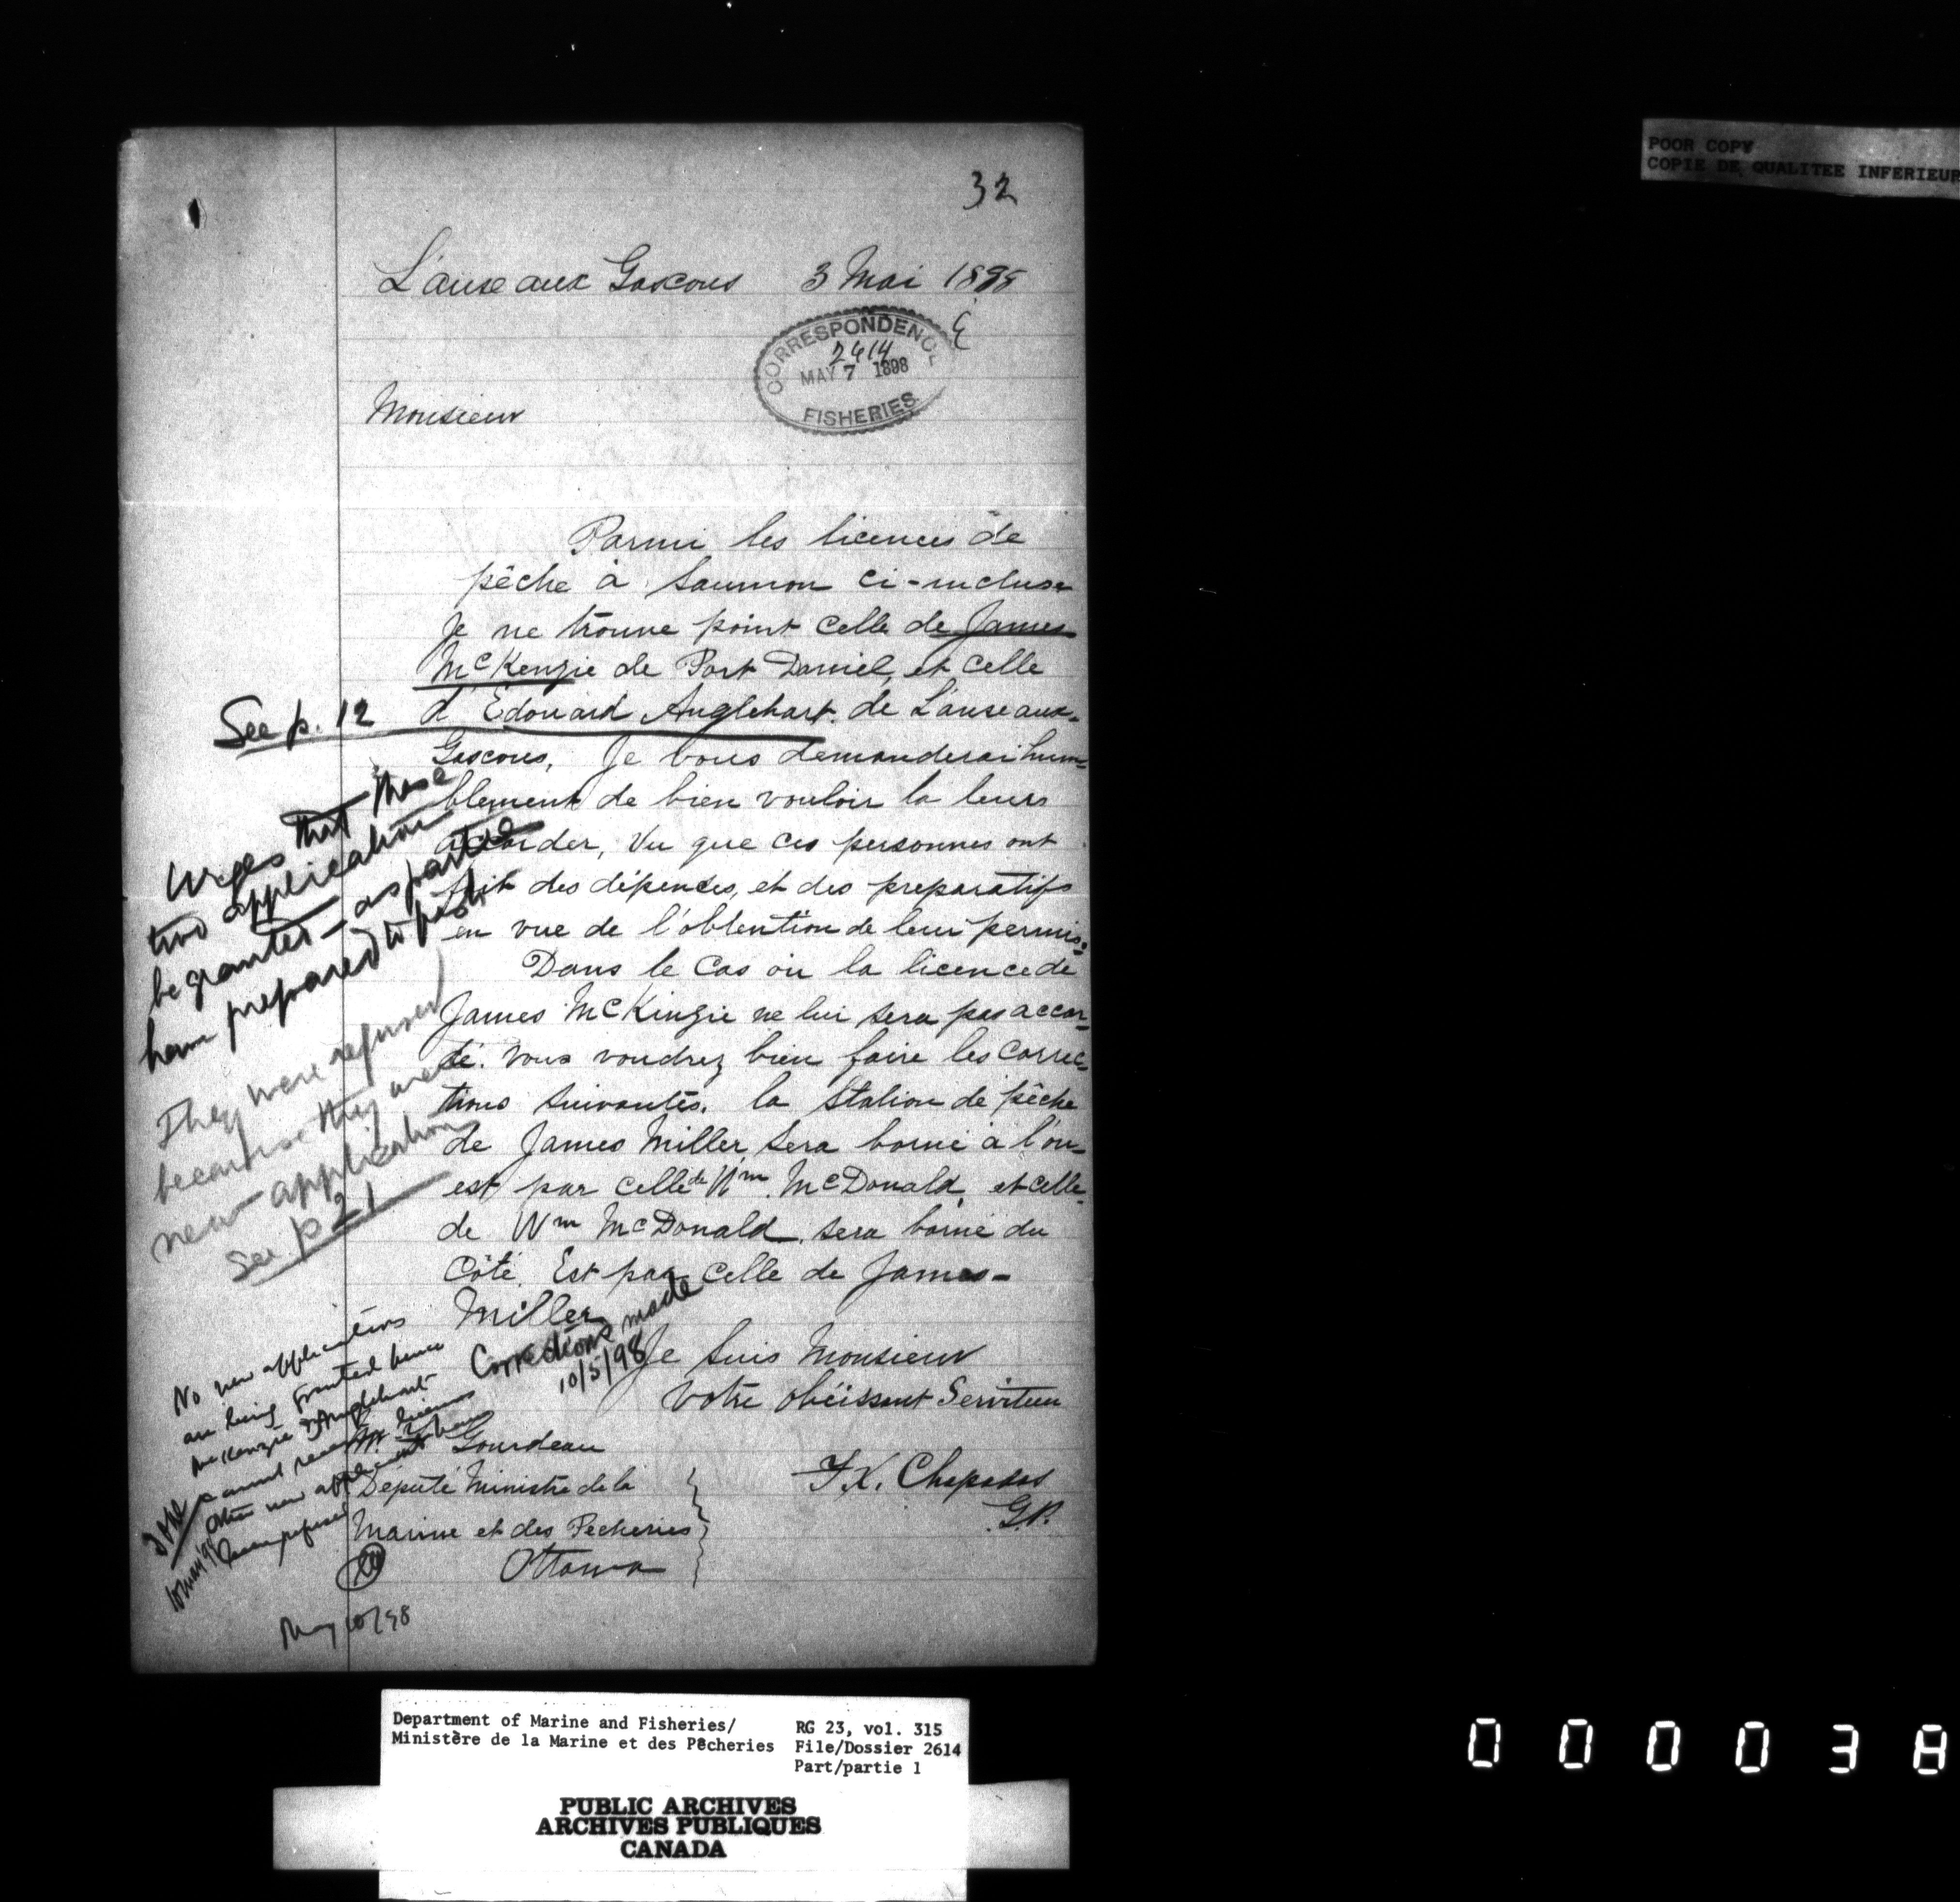 POOR COPY
COPIE DE QUALITEE INFERIEUR
32
L'anse aux Gascons 3 Mai 1898
CORRESPONDENCE
2614
MAY 7 1898
FISHERIES
Monsieur
Parmi les licences de
pêche à saumon ci-incluse
Je ne trouve point celle de James
McKenzie de Port Daniel, et celle
d'Edouard Anglehart de L'anse aux-
Gascons, Je vous demanderai hum=
blement de bien vouloir la leurs
accorder, Vu que ces personnes ont
fait des dépenses, et des preparatifs
en vue de l'obtention de leur permis.
Dans le cas où la licence de
James McKinzie ne lui sera pas accor-
dé. Vous voudrez bien faire les correc-
tions suivantes. la Station de pêche
de James Miller, sera borné à l'ou-
est par celle de Wm. McDonald, et celle
de Wm McDonald, sera borné du
Côté Est par celle de James-
Miller
Je suis Monsieur
Votre obéissant Serviteur
F.X. Chapados
G.P.
Mr Gourdeau
Deputé Ministre de la
Marine et des Pecheries
Ottawa
See p. 12
Urges that these
two applications
be granted - as parties
have prepared to fish
They were refused
because they were
new applications
See p 21
Corrections made
10/5/98
No new applications
are being granted hence
McKenzie & Anglehart
cannot receive licenses
Other new applicants have
been refused
10 May 98
May 10/98
Department of Marine and Fisheries/
Ministère de la Marine et des Pêcheries
RG 23, vol. 315
File/Dossier 2614
Part/partie 1
PUBLIC ARCHIVES
ARCHIVES PUBLIQUES
CANADA
000038